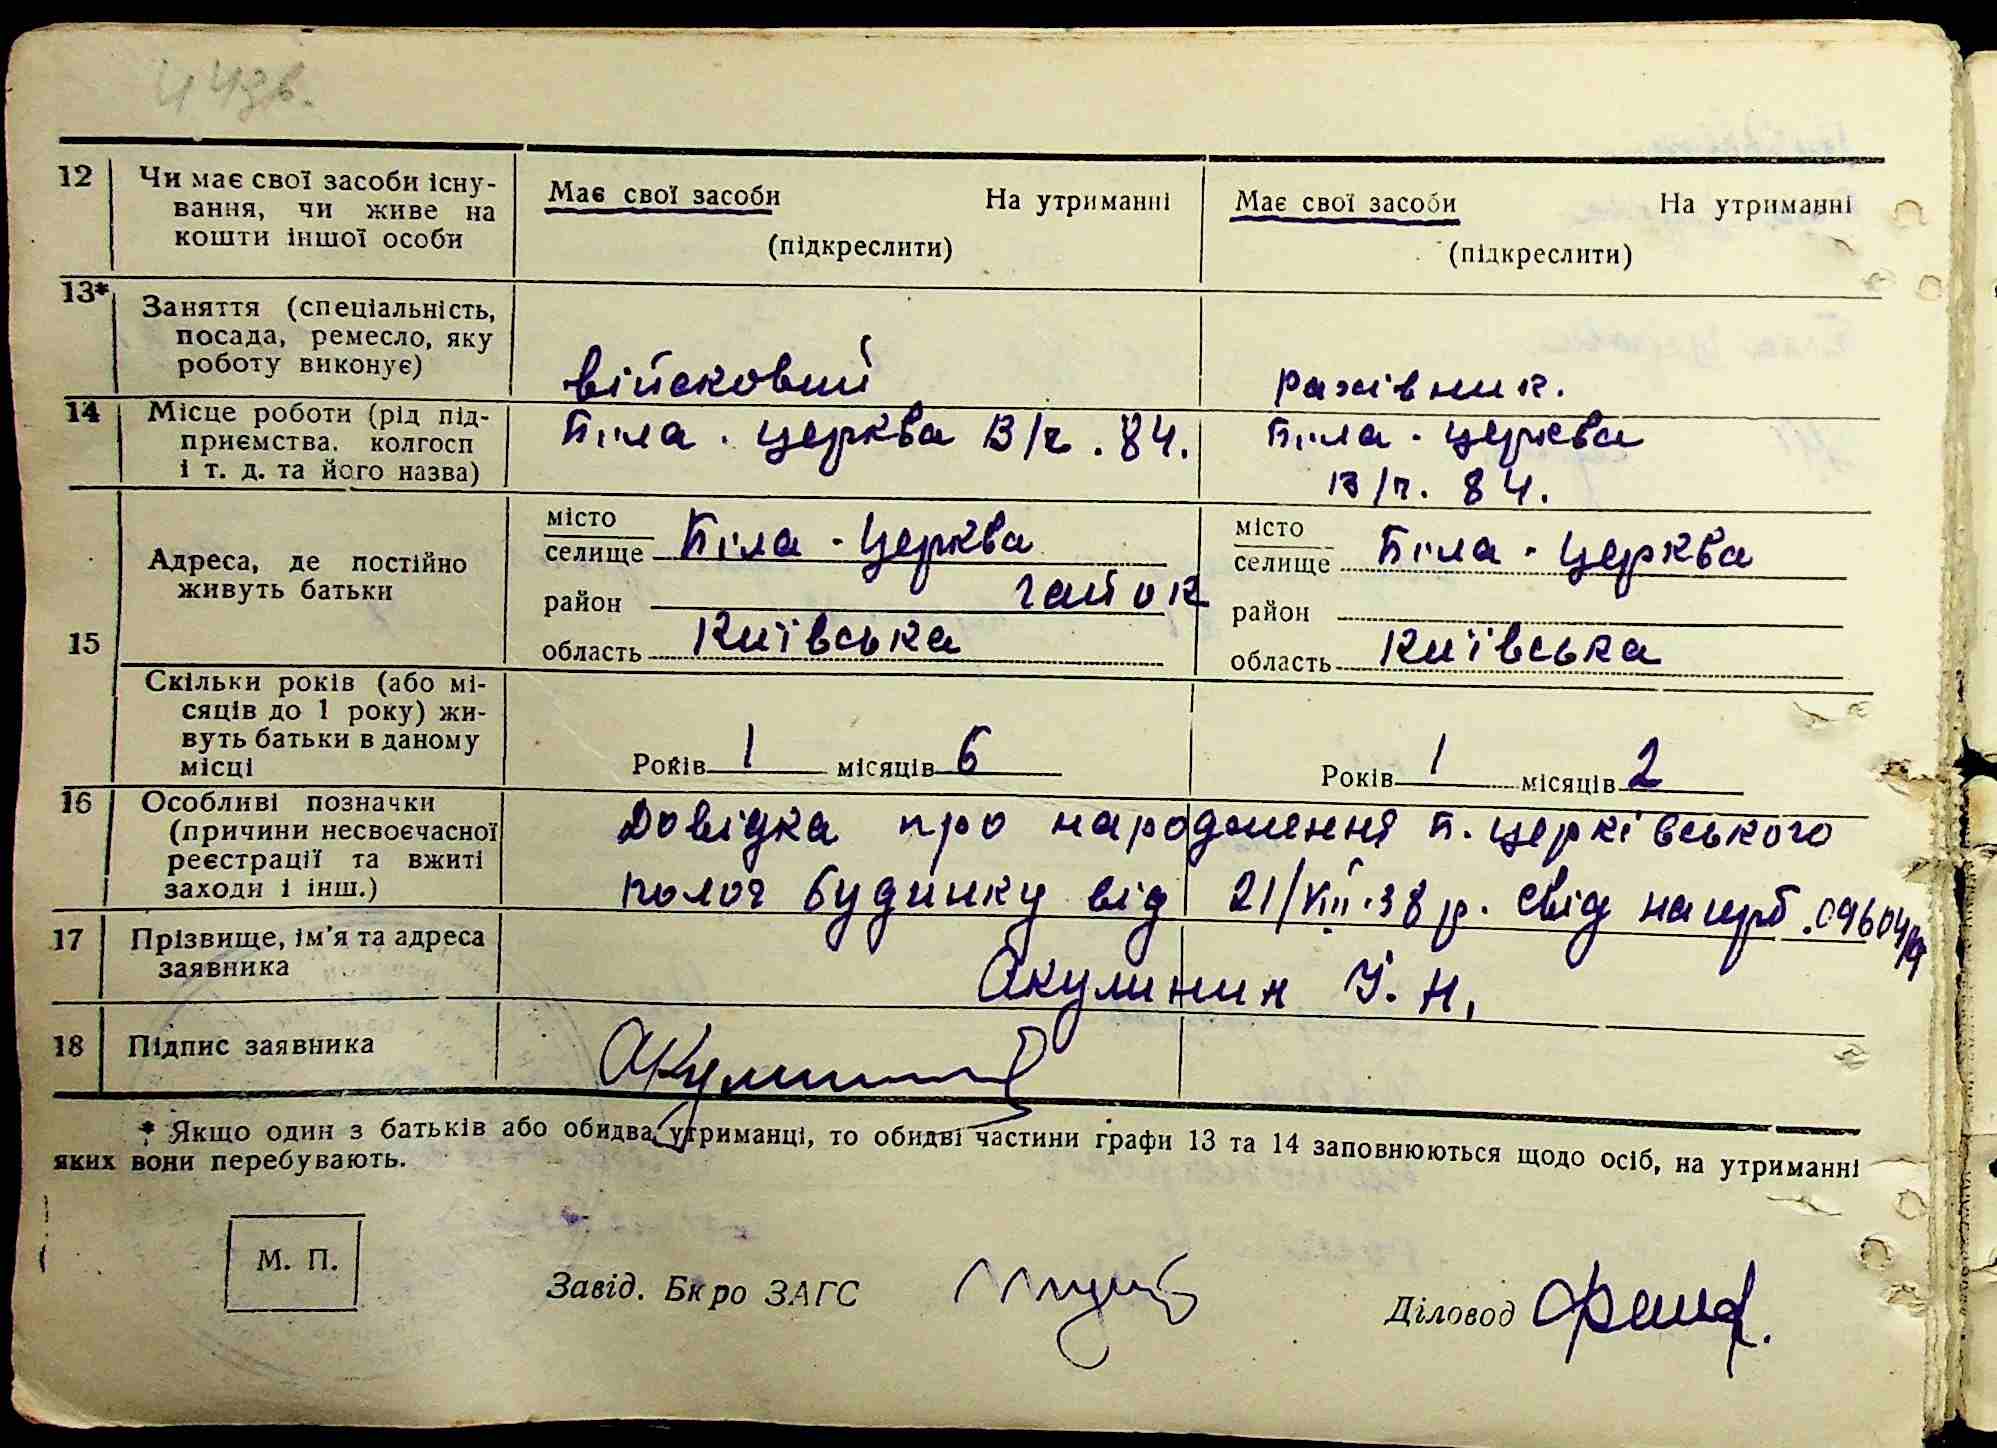 44зв.
12 Чи має свої засоби існу-
вання, чи живе на
кошти іншої особи
Має свої засоби На утриманні
(підкреслити)
Має свої засоби На утриманні
(підкреслити)
13* Заняття (спеціальність,
посада, ремесло, яку
роботу виконує)
військовий
рахівник.
14 Місце роботи (рід під-
приємства. колгосп
і т. д. та його назва)
Біла-церква В/ч. 84.
Біла-церква
В/ч. 84.
15 Адреса, де постійно
живуть батьки
місто
селище Біла-Церква
район гайок
область Київська
місто
селище Біла-Церква
район
область Київська
Скільки років (або мі-
сяців до 1 року) жи-
вуть батьки в даному
місці
Років 1 місяців 6
Років 1 місяців 2
16 Особливі позначки
(причини несвоєчасної
реєстрації та вжиті
заходи і інш.)
Довідка про народження Б. церківського
полог будинку від 21/VIII.38 р. свід на шрб. 09604
17 Прізвище, ім'я та адреса
заявника
Акулинин І. Н.
18 Підпис заявника
Акулинин
* Якщо один з батьків або обидва утриманці, то обидві частини графи 13 та 14 заповнюються щодо осіб, на утриманні
яких вони перебувають.
М. П.
Завід. Бюро ЗАГС
Діловод